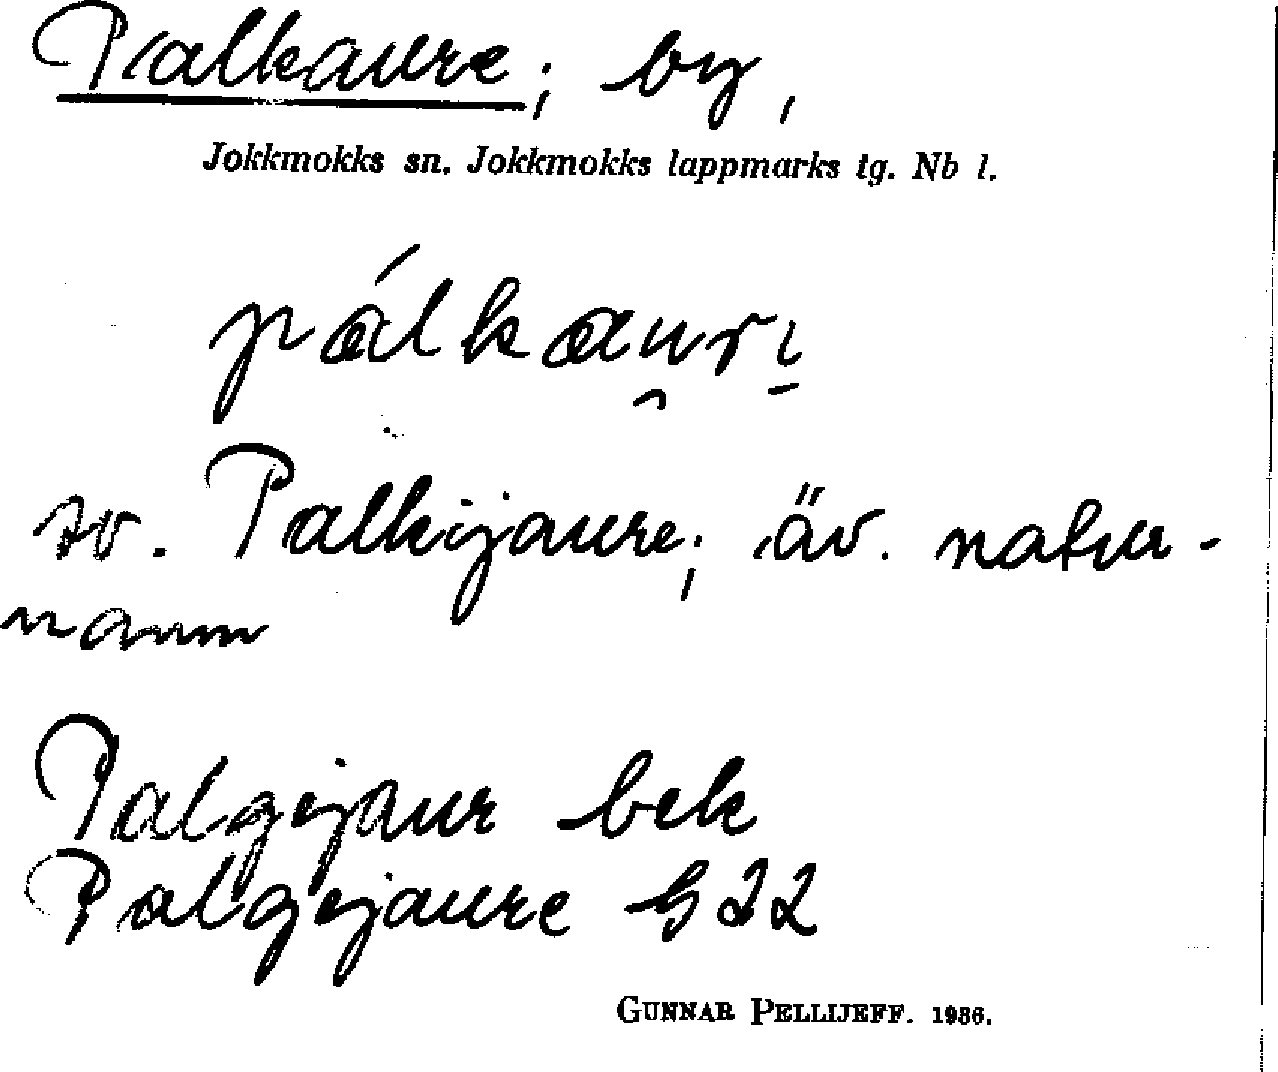 Palkaure; by,
Jokkmokks sn. Jokkmokks lappmarks tg. Nb l.
pálkau̯ri̱
sv. Palkijaure; äv. natur-
namn
Palgijaur bek
Palgijaure G22
GUNNAR PELLIJEFF. 1936.